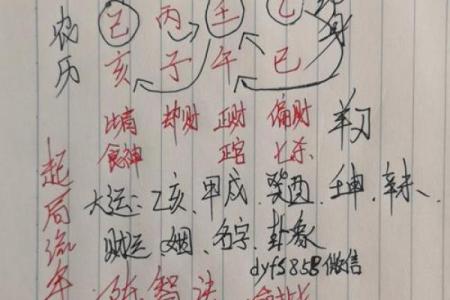 农历
己 丙 壬 乙
亥 子 午 巳
比肩 却财 正财 偏财 羊刃
食神 正官 七杀
起局流年
大运:乙亥、甲戌、癸酉、壬申、辛未、
财运、姻、名字、卦象
dyf5858微信